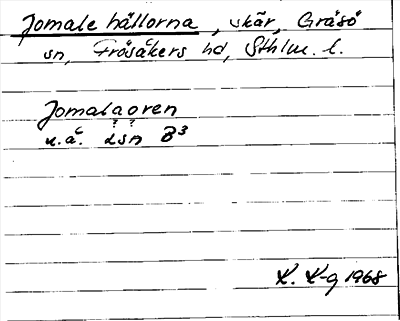 Jomale hällorna, skär, Gräsö
sn, Frösåkers hd, Sthlm. l.
Jomalaoren
? ?
u.å. LSn B3
K. K-g 1968